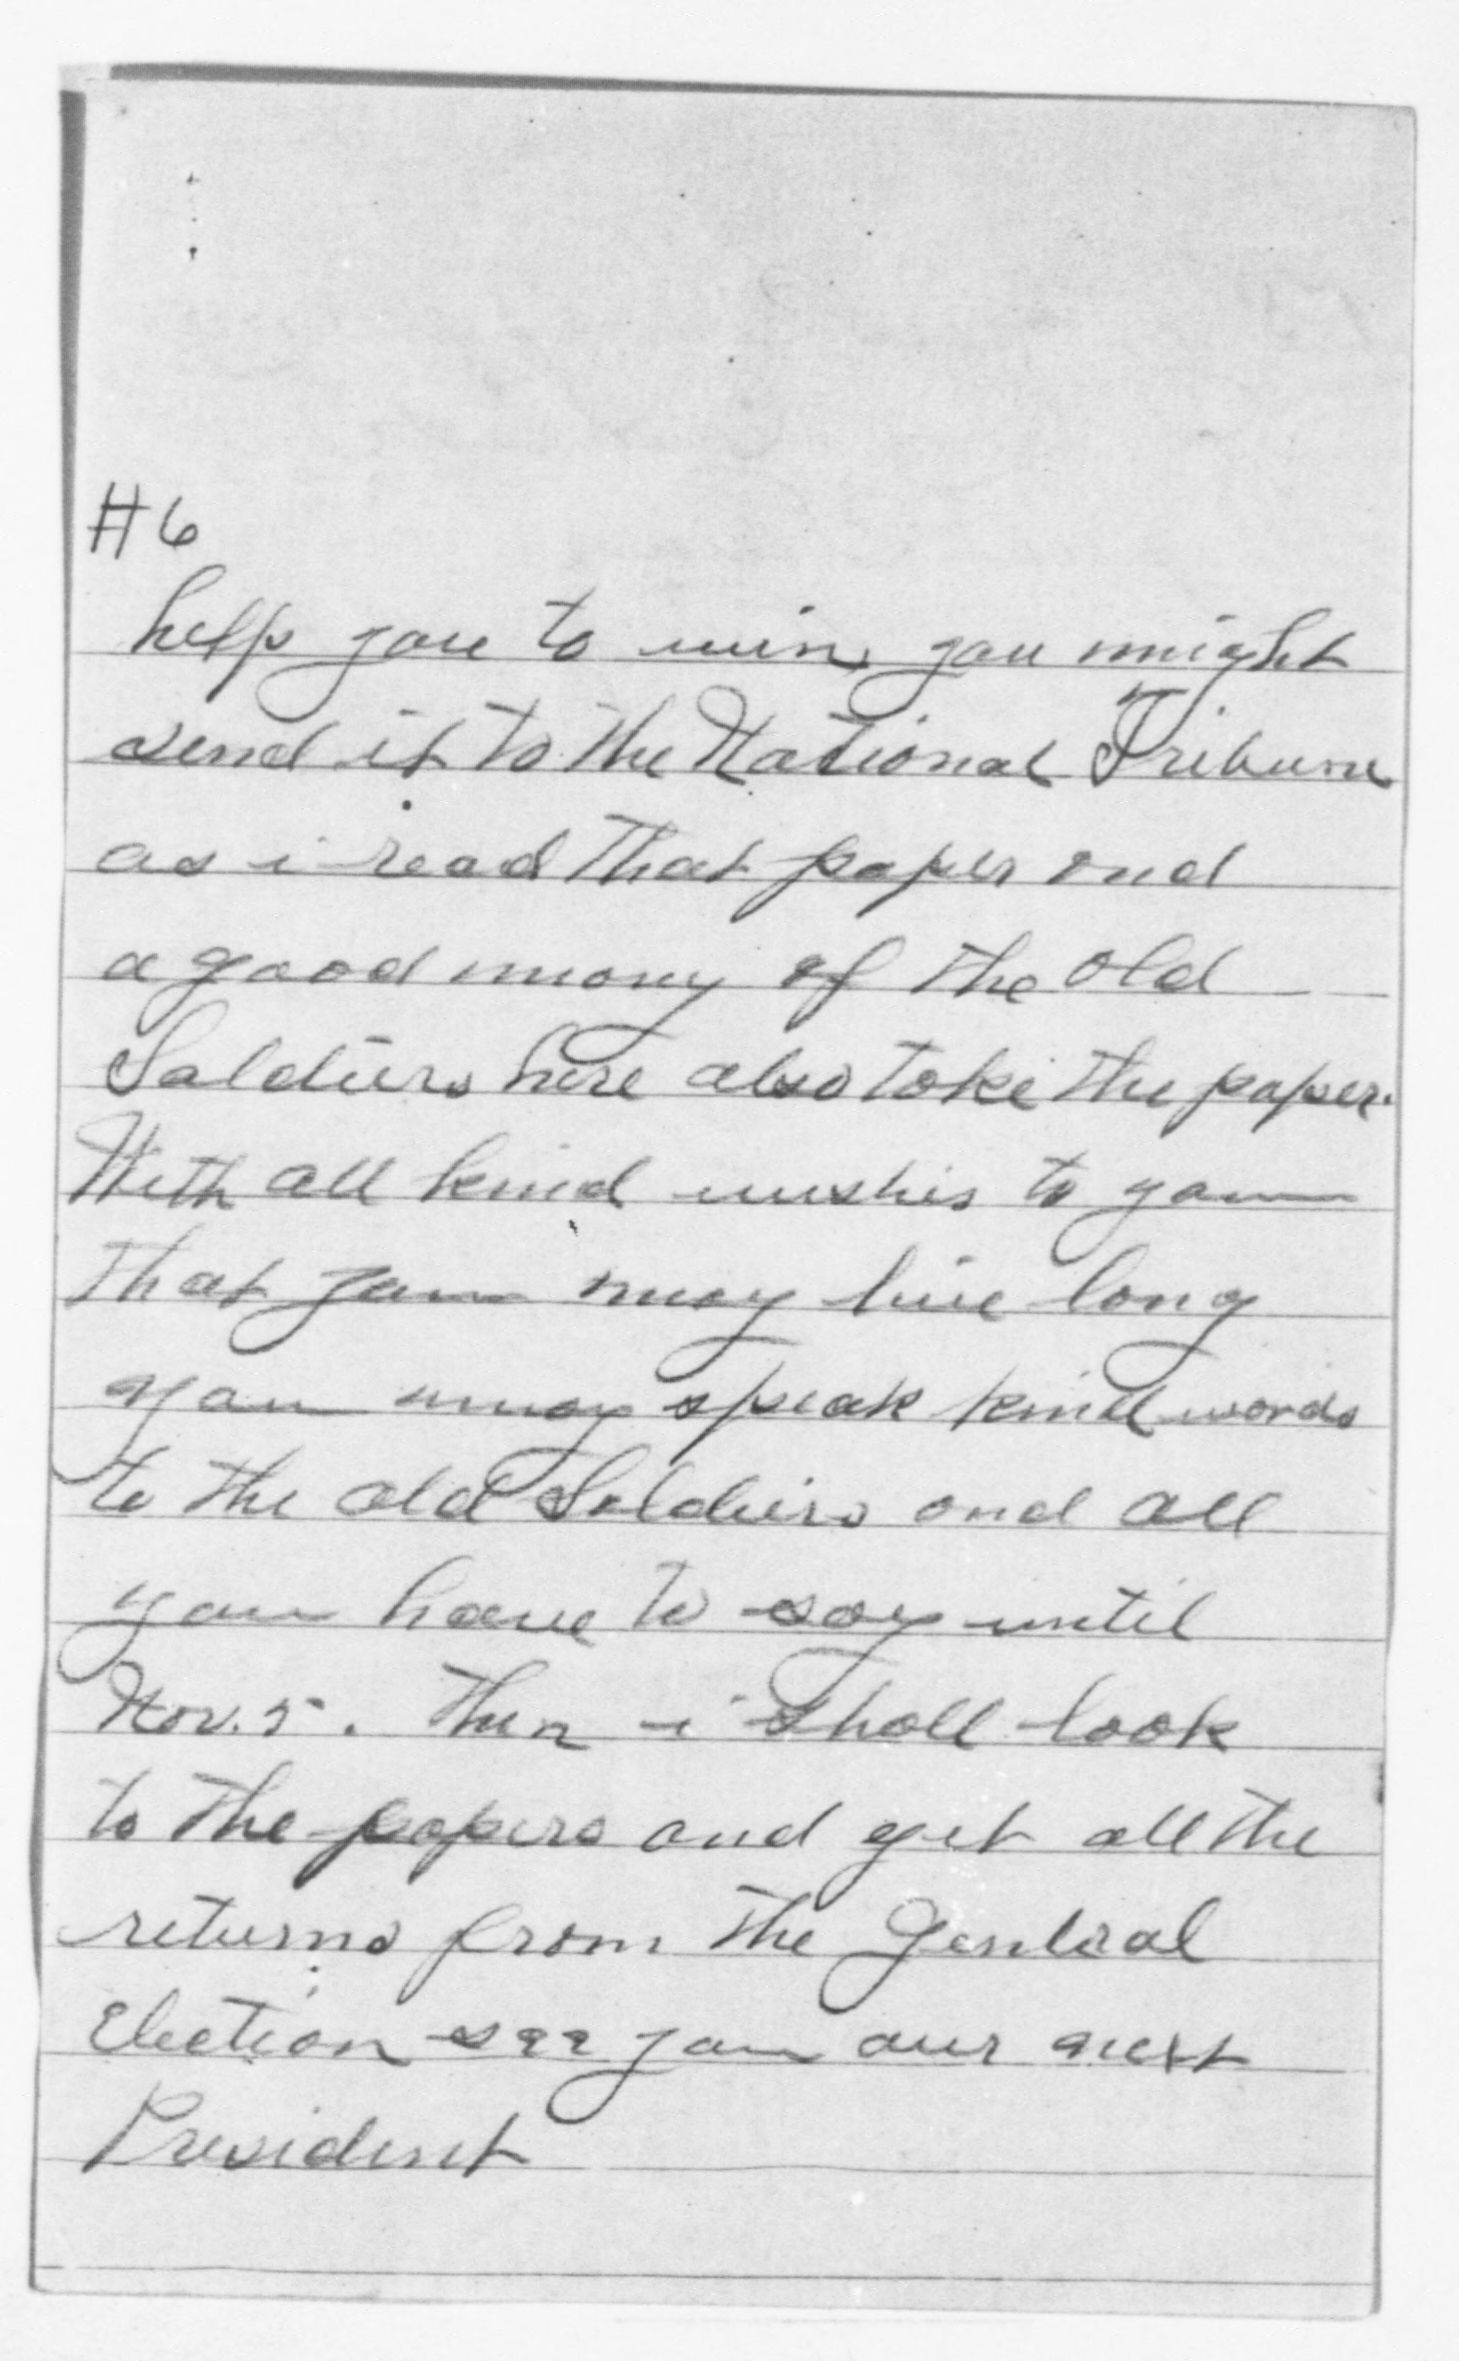 #6
help you to win, you might
send it to the National Tribune
as i read that paper and
a good many of the old
Soldiers here also take the paper.
With all kind wishes to you
that you may live long
you may speak kind words
to the old Soldiers and all
you have to say until
Nov. 5. Then i shall look
to the papers and get all the
returns from the General
Election see you our next
President